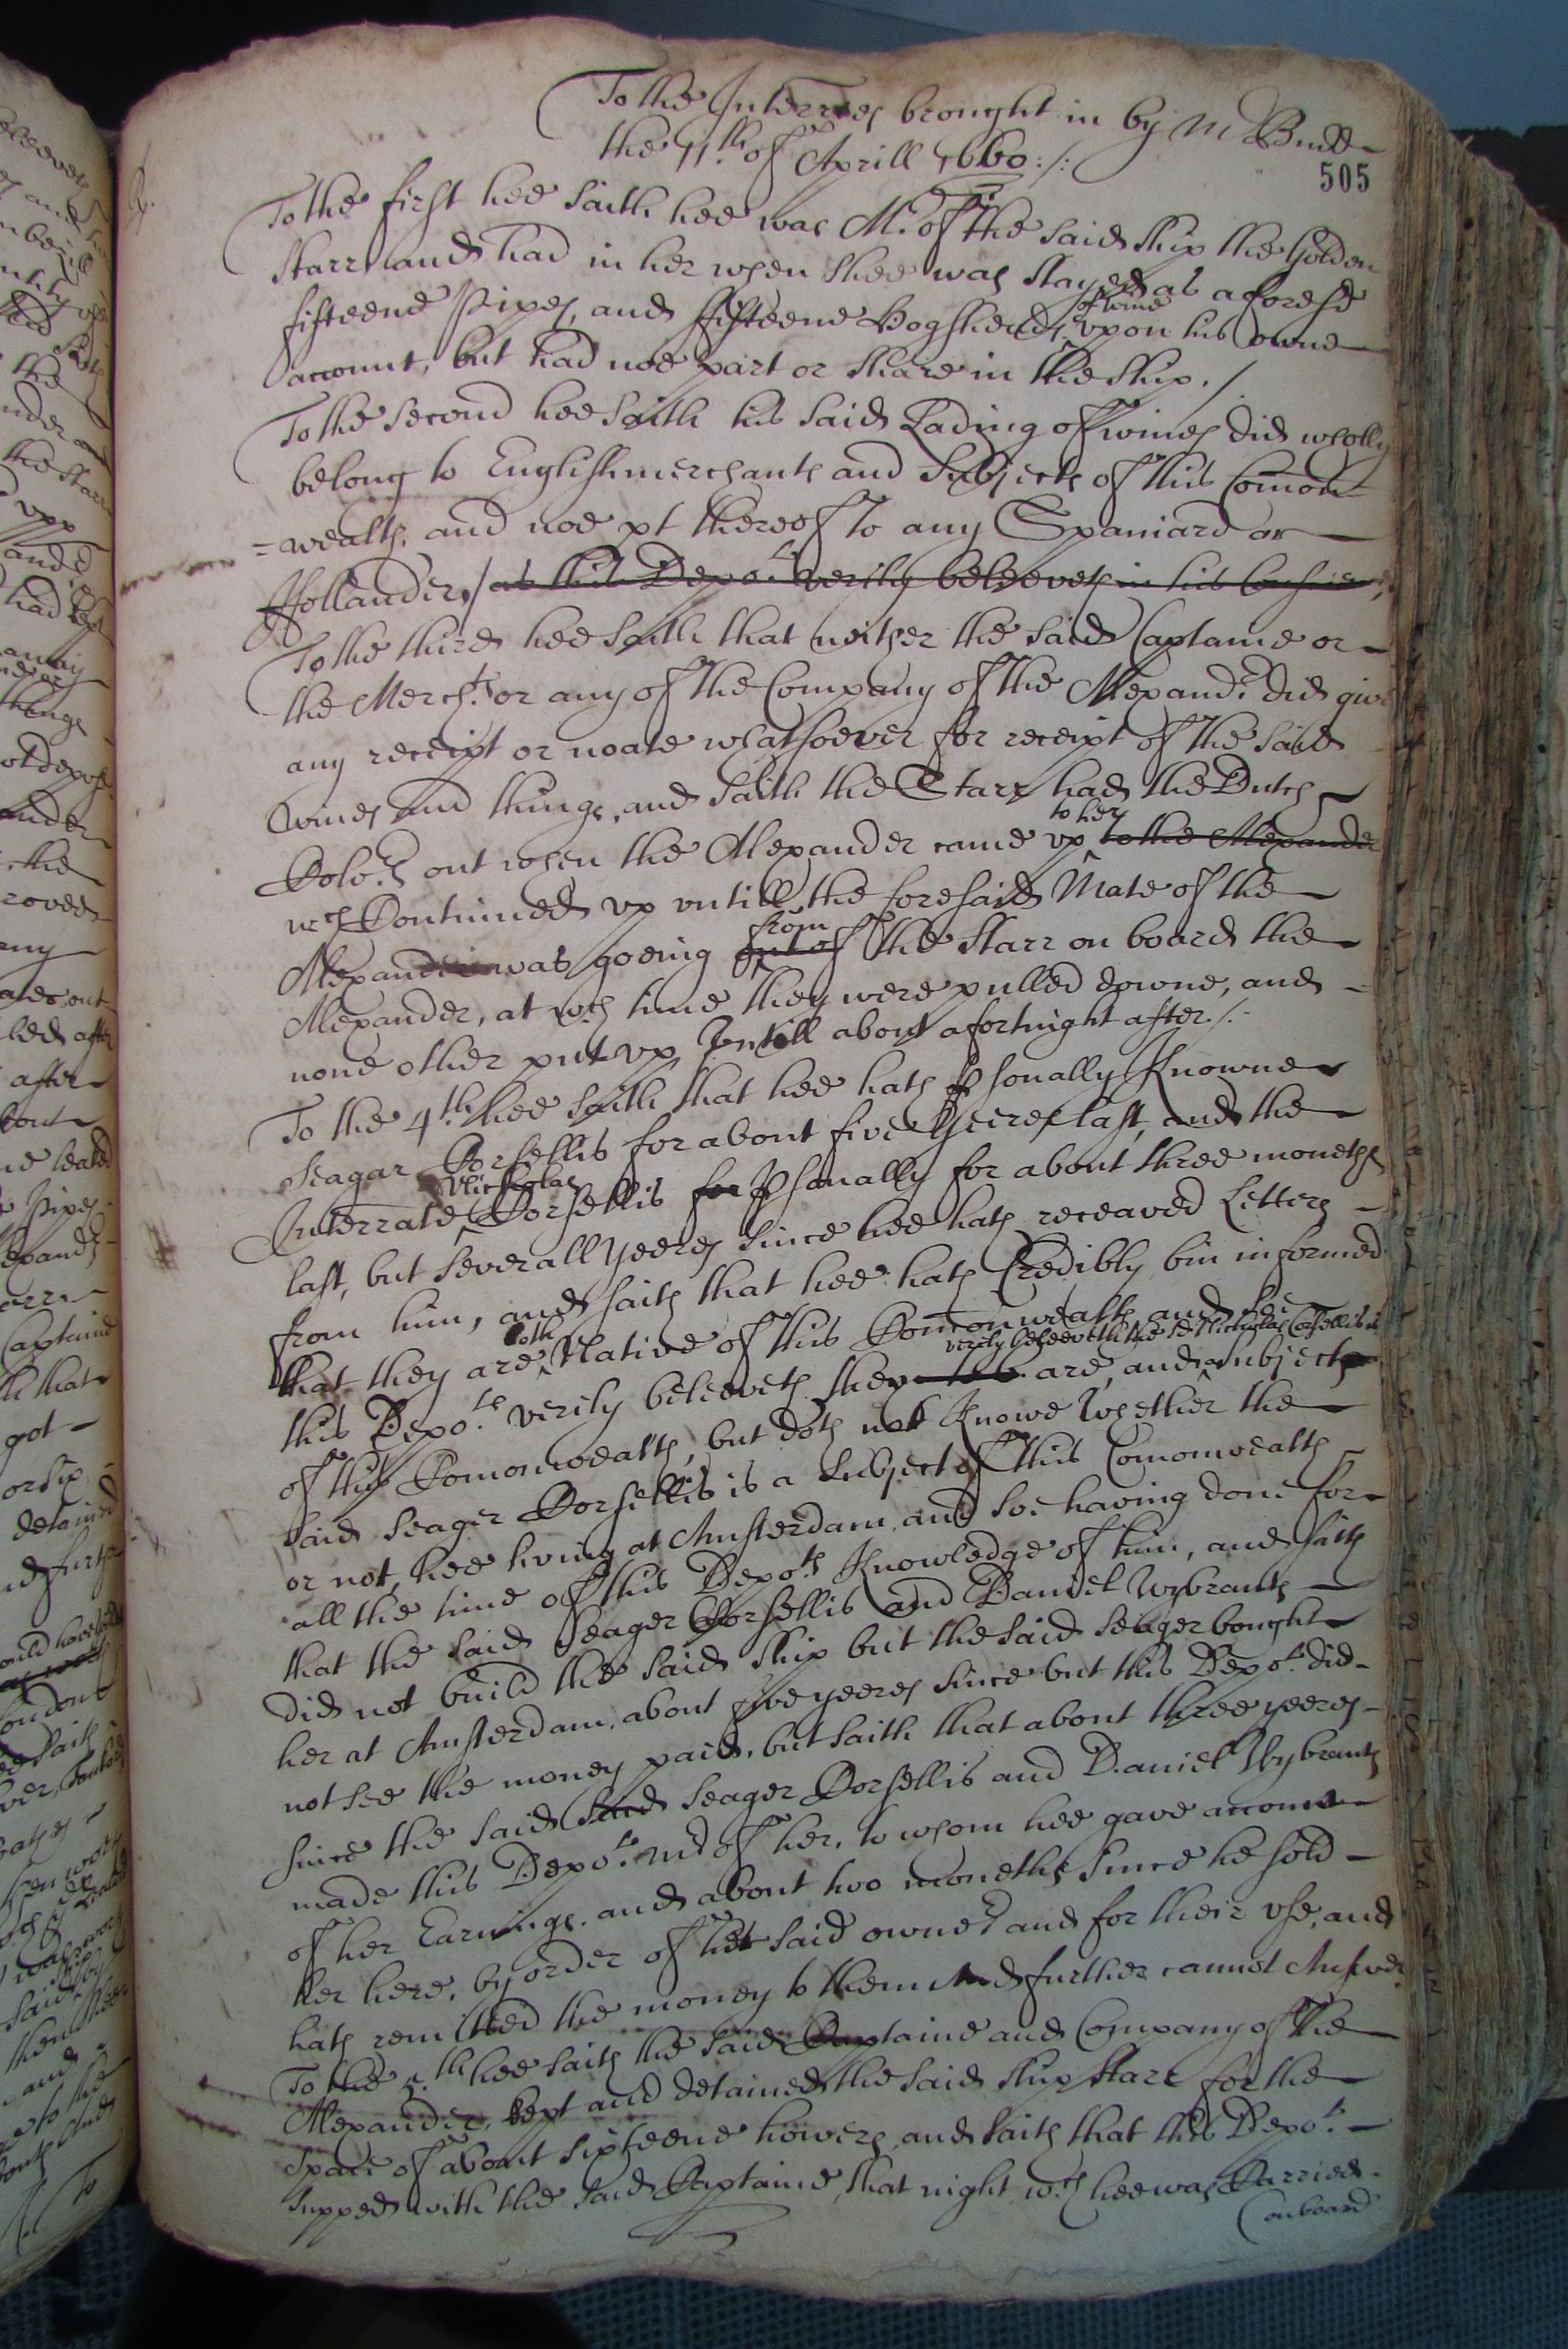 To the Interries brought in by Mr Budd
the 11th of Aprill 1660 :/:
505
To the first hee saith hee was Mr. of the said ship the Golden
Starr and had in her when shee was stayed as aforesd
fifteene Pipes, and ffifteene Hogsheads of wine vpon his owne
account, but had noe part or share in the ship. /
To the second hee saith his said Lading of wines did wholly
belong to English merchants and Subjects of this Comon
=wealth, and noe pt thereof to any Spaniard or
Hollander, / as this Depot. verily beleeveth in his Conscience,
To the third hee saith that neither the said Captaine or
the Mercht. or any of the Company of the Alexandr. did give
any receipt or noate whatsoever for receipt of the said
wines and things, and saith the Starr had the Dutch
Colors out when the Alexander came vp to her to the Alexander
wch Continued vp vntill the foresaid Mate of the
Alexander was goeing from out of the Starr on board the
Alexander, at wch time they were pulled downe, and
none other put vp vntill about a fortnight after. /:
To the 4th. hee saith that hee hath psonally Knowne
Seagar Corsellis for about five Yeeres last, and the
Interrate Nicholas Corsellis for Psonally for about three moneths
last, but severall yeeres since hee hath receaved Letters
from him, and saith that hee hath Credibly bin informed
that they are both Native of this Comonwealth and hee
this Depot. verily beleeveth they are, and verily beleeveth the sd Nicholas Corsellis is a subject
of this Comonwealth, but doth not Knowe whether the
said Seager Corsellis is a Subject of this Comonwealth
or not, hee living at Amsterdam, and soe having done for
all the time of this Depots Knowledge of him, and saith
that the said Seager Corsellis and Daniel Wybrants
did not build the said ship but the said Seager bought
her at Amsterdam, about five yeeres since but this Depot. did
not see the money paid, but saith that about three yeeres
since the said said Seager Corsellis and Daniel Wybrants
made this Depot. Mr of her, to whom hee gave account
of her Earnings, and about two moneths since he sold
her here, by order of her said owners and for their vse, and
hath remitted the money to them And further cannot Answer.
To the 5th. hee saith the said Captaine and Company of the
Alexander, kept and detained the said ship Starr for the
space of about sixteene howers, and saith that this Depot.
supped with the said Captaine, that night wch hee was Carried
onboard